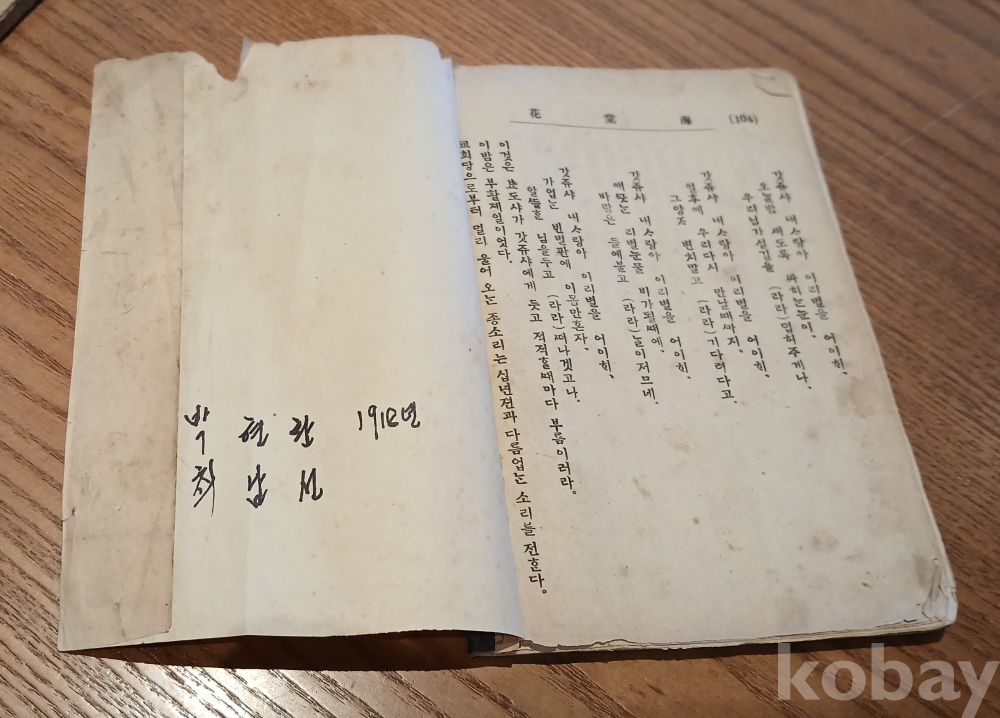 (104) 海棠花
갓쥬샤 내ᄉᆞ랑아 이리별을 어이히,
오늘밤 새도록 싸히는눈이,
우리님가실길을 (라라)덥허주게나,
갓쥬샤 내ᄉᆞ랑아 이리별을 어이히,
우리다시 만날때까지,
그양ᄌᆞ 변치말고 (라라)기다려다고,
갓쥬샤 내ᄉᆞ랑아 이리별을 어이히,
애끗는 리별눈물 비가될때에,
바람은 들에불고 (라라)날이저므네.
갓쥬샤 내ᄉᆞ랑아 이리별을 어이히,
가업는 벌판에 이몸만혼자,
알뜰ᄒᆞᆫ 님을두고 (라라)떠나겟고나.
이것은 뇨도샤가 갓쥬샤에게 듯고 적적ᄒᆞᆯ때마다 부름이러라。
이밤은 부활졔일이엇다.
교회당으로부터 멀리 울어 오는 종소리는 십년젼과 다름업는 소리를 젼ᄒᆞᆫ다。
박 현 환 1918년
최 남 선
kobay